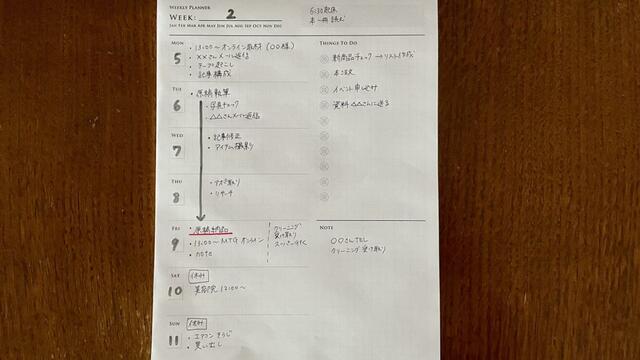 WEEKLY PLANNER
WEEK: 2
JAN FEB MAR APR MAY JUN JUL AUG SEP OCT NOV DEC
6:30起床
本一冊読む
MON
5
・13:00〜オンライン取材(〇〇様)
・××さんメール返信
・テープ起こし
・記事構成
TUE
6
・原稿執筆
・写真チェック
・△△さんメール返信
WED
7
・記事修正
・アイテム撮影
THU
8
・アポ取り
・リサーチ
FRI
9
・原稿納品
・13:00〜MTG オンライン
・note
クリーニング
受け取り
SAT
10
休み
美容院 12:00〜
SUN
11
休み
・エアコンそうじ
・買い出し
THINGS TO DO
新商品チェック→リスト作成
本注文
イベント申し込み
資料 △△さんに送る
NOTE
〇〇さんTEL
クリーニング受け取り